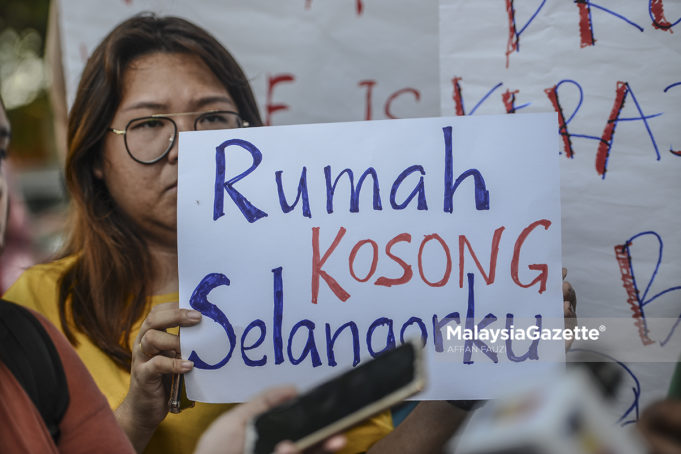 E IS
Rumah
KOSONG
Selangorku
MalaysiaGazette
AFFAN FAUZI